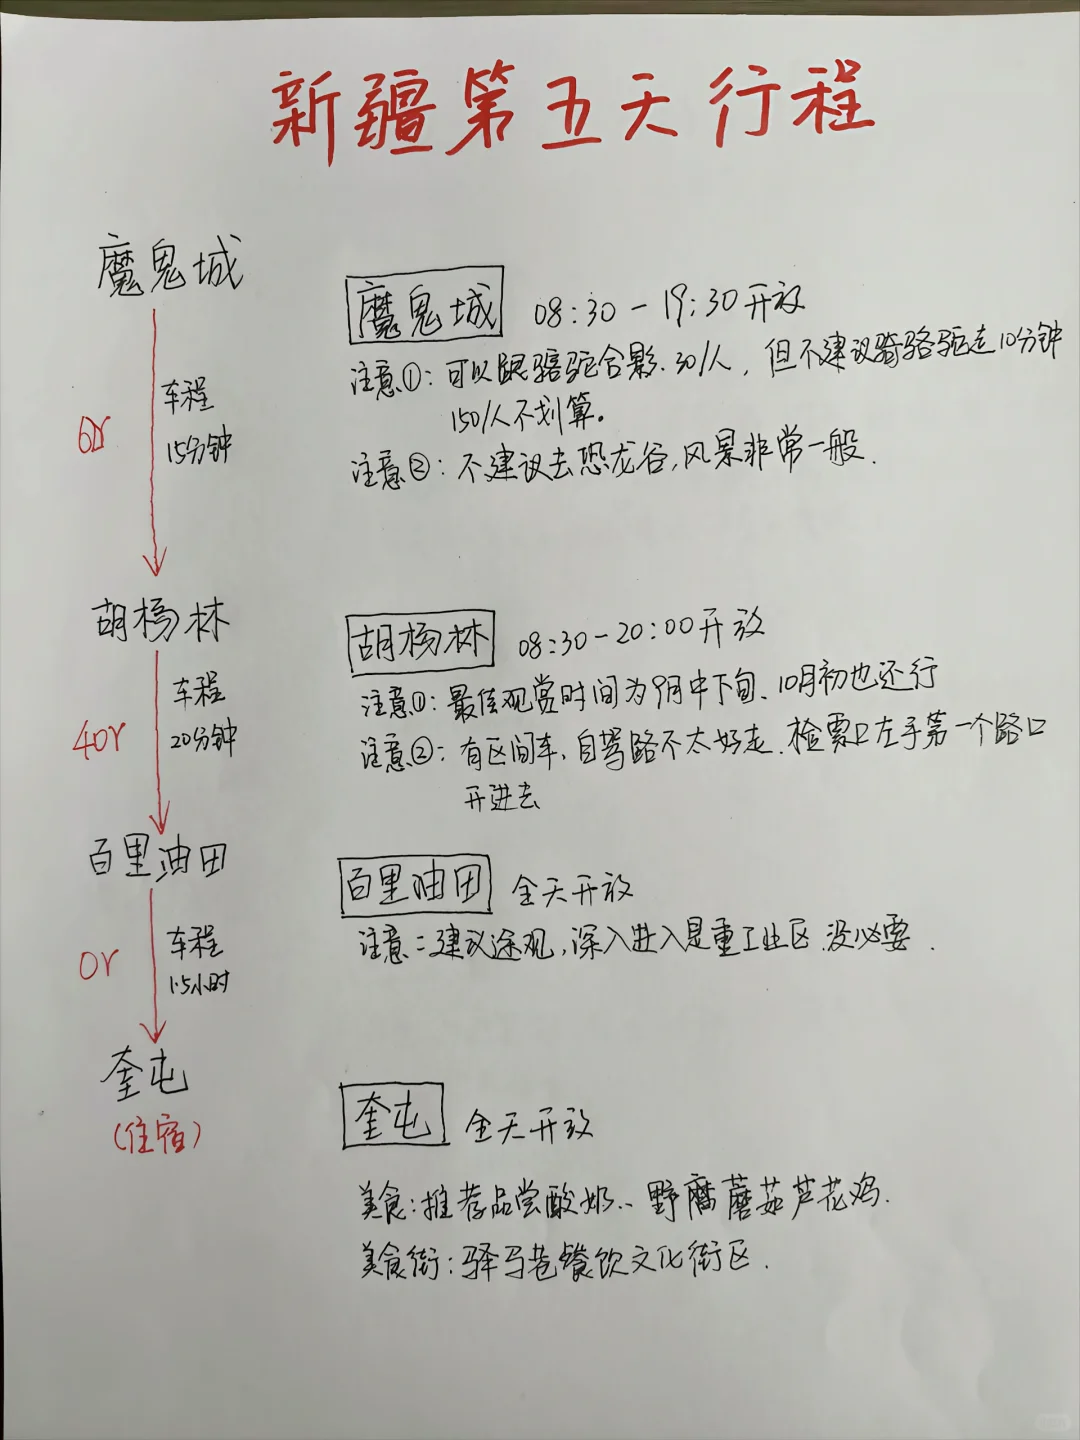 新疆第五天行程
魔鬼城
车程
15分钟
60r
魔鬼城 08:30-19:30开放
注意①:可以跟骆驼合影.30/人,但不建议骑骆驼走10分钟
150/人不划算。
注意②:不建议去恐龙谷,风景非常一般.
胡杨林
车程
20分钟
40r
胡杨林 08:30-20:00开放
注意①:最佳观赏时间为9月中下旬、10月初也还行
注意②:有区间车,自驾路不太好走.检票口左手第一个路口
开进去
百里油田
车程
1.5小时
0r
百里油田 全天开放
注意:建议途观,深入进入是重工业区.没必要.
奎屯
(住宿)
奎屯 全天开放
美食:推荐品尝酸奶、野蘑蘑菇芦花鸡.
美食街:驿马巷餐饮文化街区.